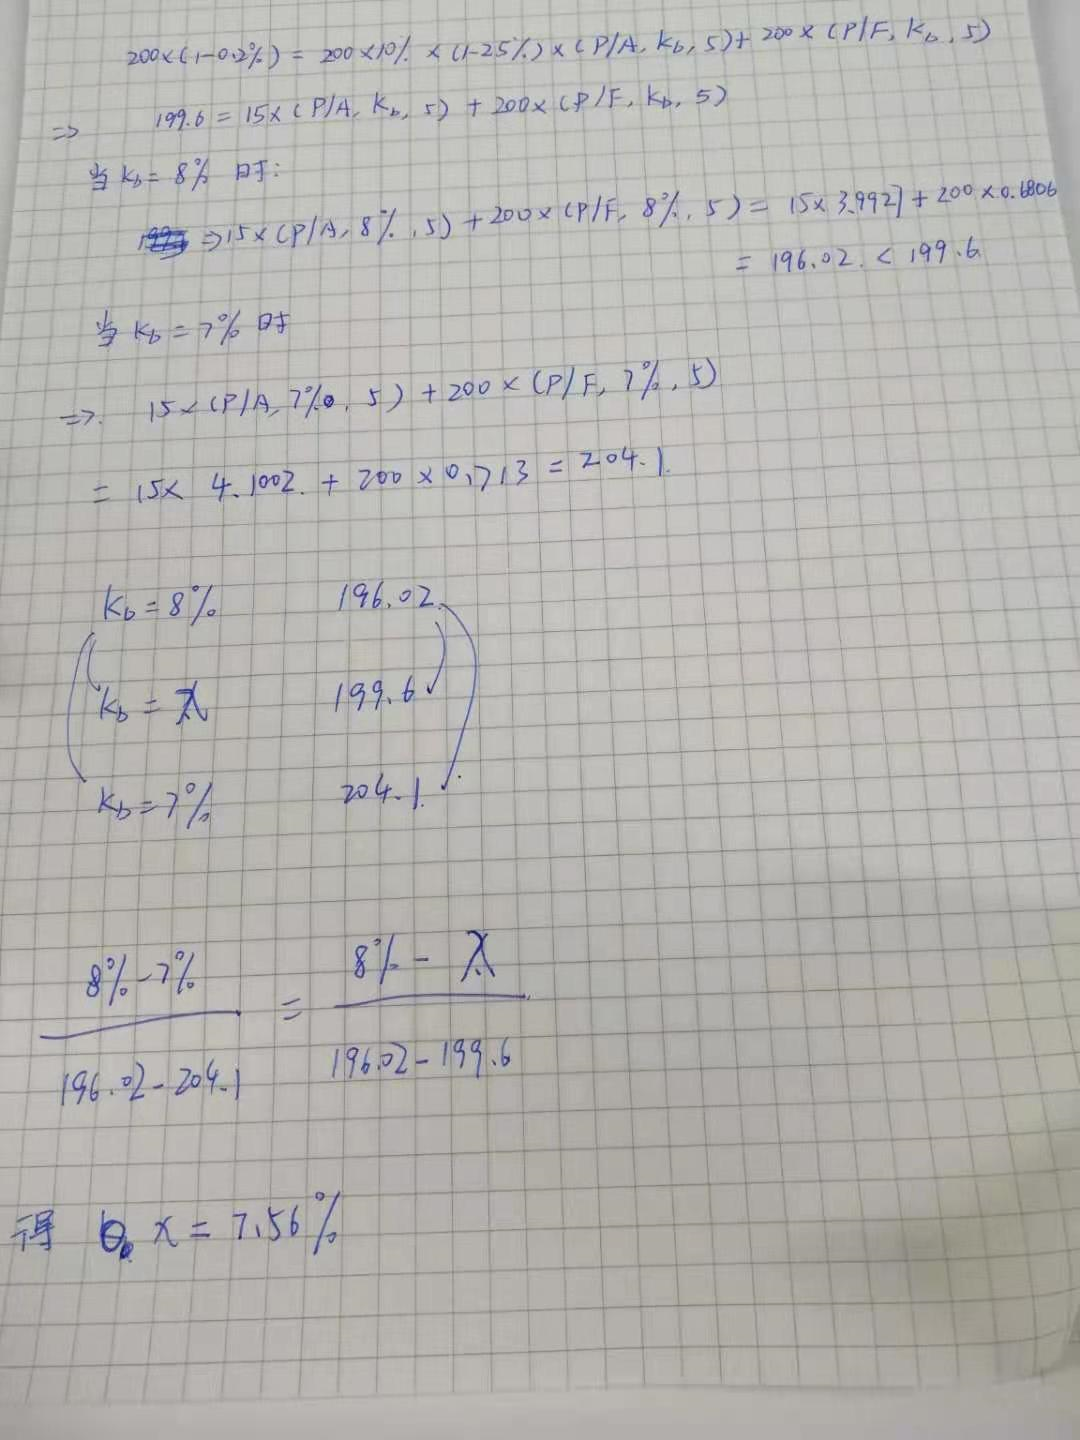 200×(1-0.2%) = 200×10% ×(1-25%)×(P/A, Kb, 5)+ 200×(P/F, Kb, 5)
⇒ 199.6 = 15×(P/A, Kb, 5) + 200×(P/F, Kb, 5)
当 Kb = 8% 时:
⇒15×(P/A, 8%, 5)+200×(P/F, 8%, 5) = 15×3.9927+200×0.6806
= 196.02 < 199.6
当 Kb = 7% 时
⇒ 15×(P/A, 7%, 5) + 200×(P/F, 7%, 5)
= 15× 4.1002 + 200×0.713 = 204.1
Kb = 8% 196.02
Kb = x 199.6
Kb = 7% 204.1
8%-7% = 8%-x
196.02-204.1 196.02-199.6
得 x = 7.56%